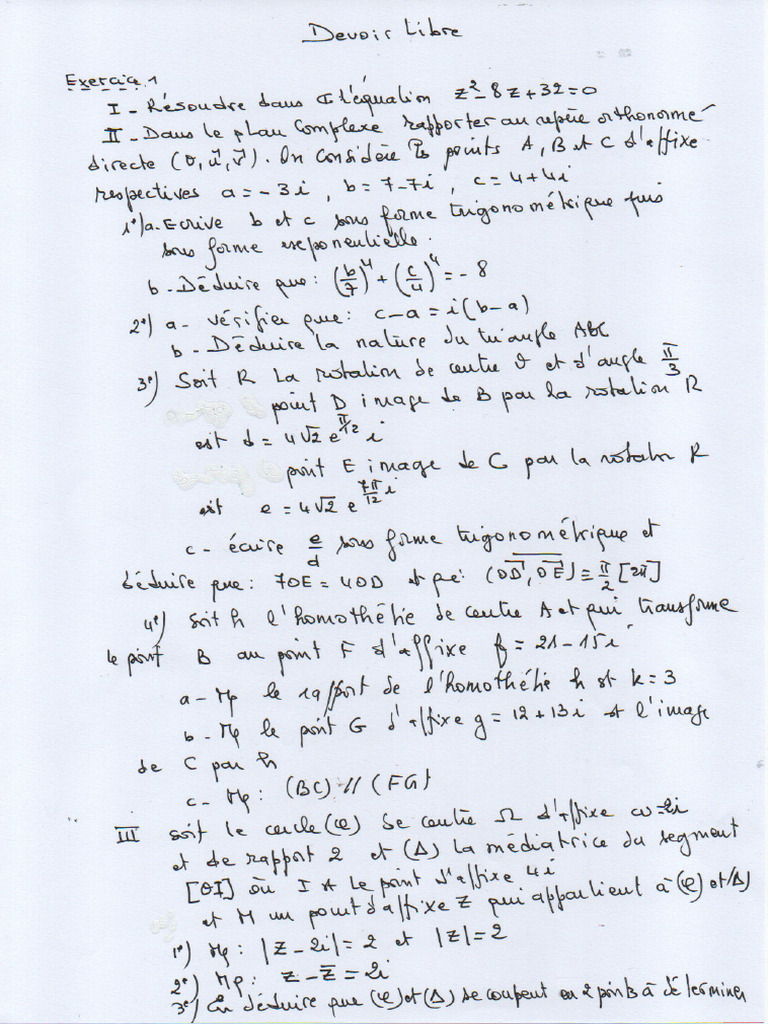 Devoir Libre
Exercice 1
I - Résoudre dans ℂ l'équation z² - 8z + 32 = 0
II - Dans le plan complexe rapporter au repère orthonormé
directe (O, u⃗, v⃗). On considère les points A, B et C d'affixe
respectives a = -3i, b = 7-7i, c = 4+4i
1°/a- Ecrive b et c sous forme trigonométrique puis
sous forme exponentielle.
b - Déduire que: (b/7)⁴ + (c/4)⁴ = -8
2°) a - vérifier que: c-a = i(b-a)
b - Déduire la nature du triangle ABC
3°) Soit R La rotation de centre O et d'angle π/3
point D image de B par la rotation R
est d = 4√2 e^(π/12 i)
point E image de C par la rotation R
est e = 4√2 e^(7π/12 i)
c - écrire e/d sous forme trigonométrique et
déduire que: 7OE = 4OD et que: (OD⃗, OE⃗) ≡ π/2 [2π]
4°) soit h l'homothétie de centre A et qui transforme
le point B au point F d'affixe f = 21-15i
a - Mq le rapport de l'homothétie h st k = 3
b - Mq le point G d'affixe g = 12+13i st l'image
de C par h
c - Mq: (BC) // (FG)
III soit le cercle (𝒞) de centre Ω d'affixe ω=2i
et de rapport 2 et (Δ) la médiatrice du segment
[OI] où I st le point d'affixe 4i
et M un point d'affixe z qui appartient à (𝒞) et (Δ)
1°) Mq: |z-2i| = 2 et |z| = 2
2°) Mq: z - z̄ = 2i
3°) En déduire que (𝒞) et (Δ) se coupent en 2 points à déterminer